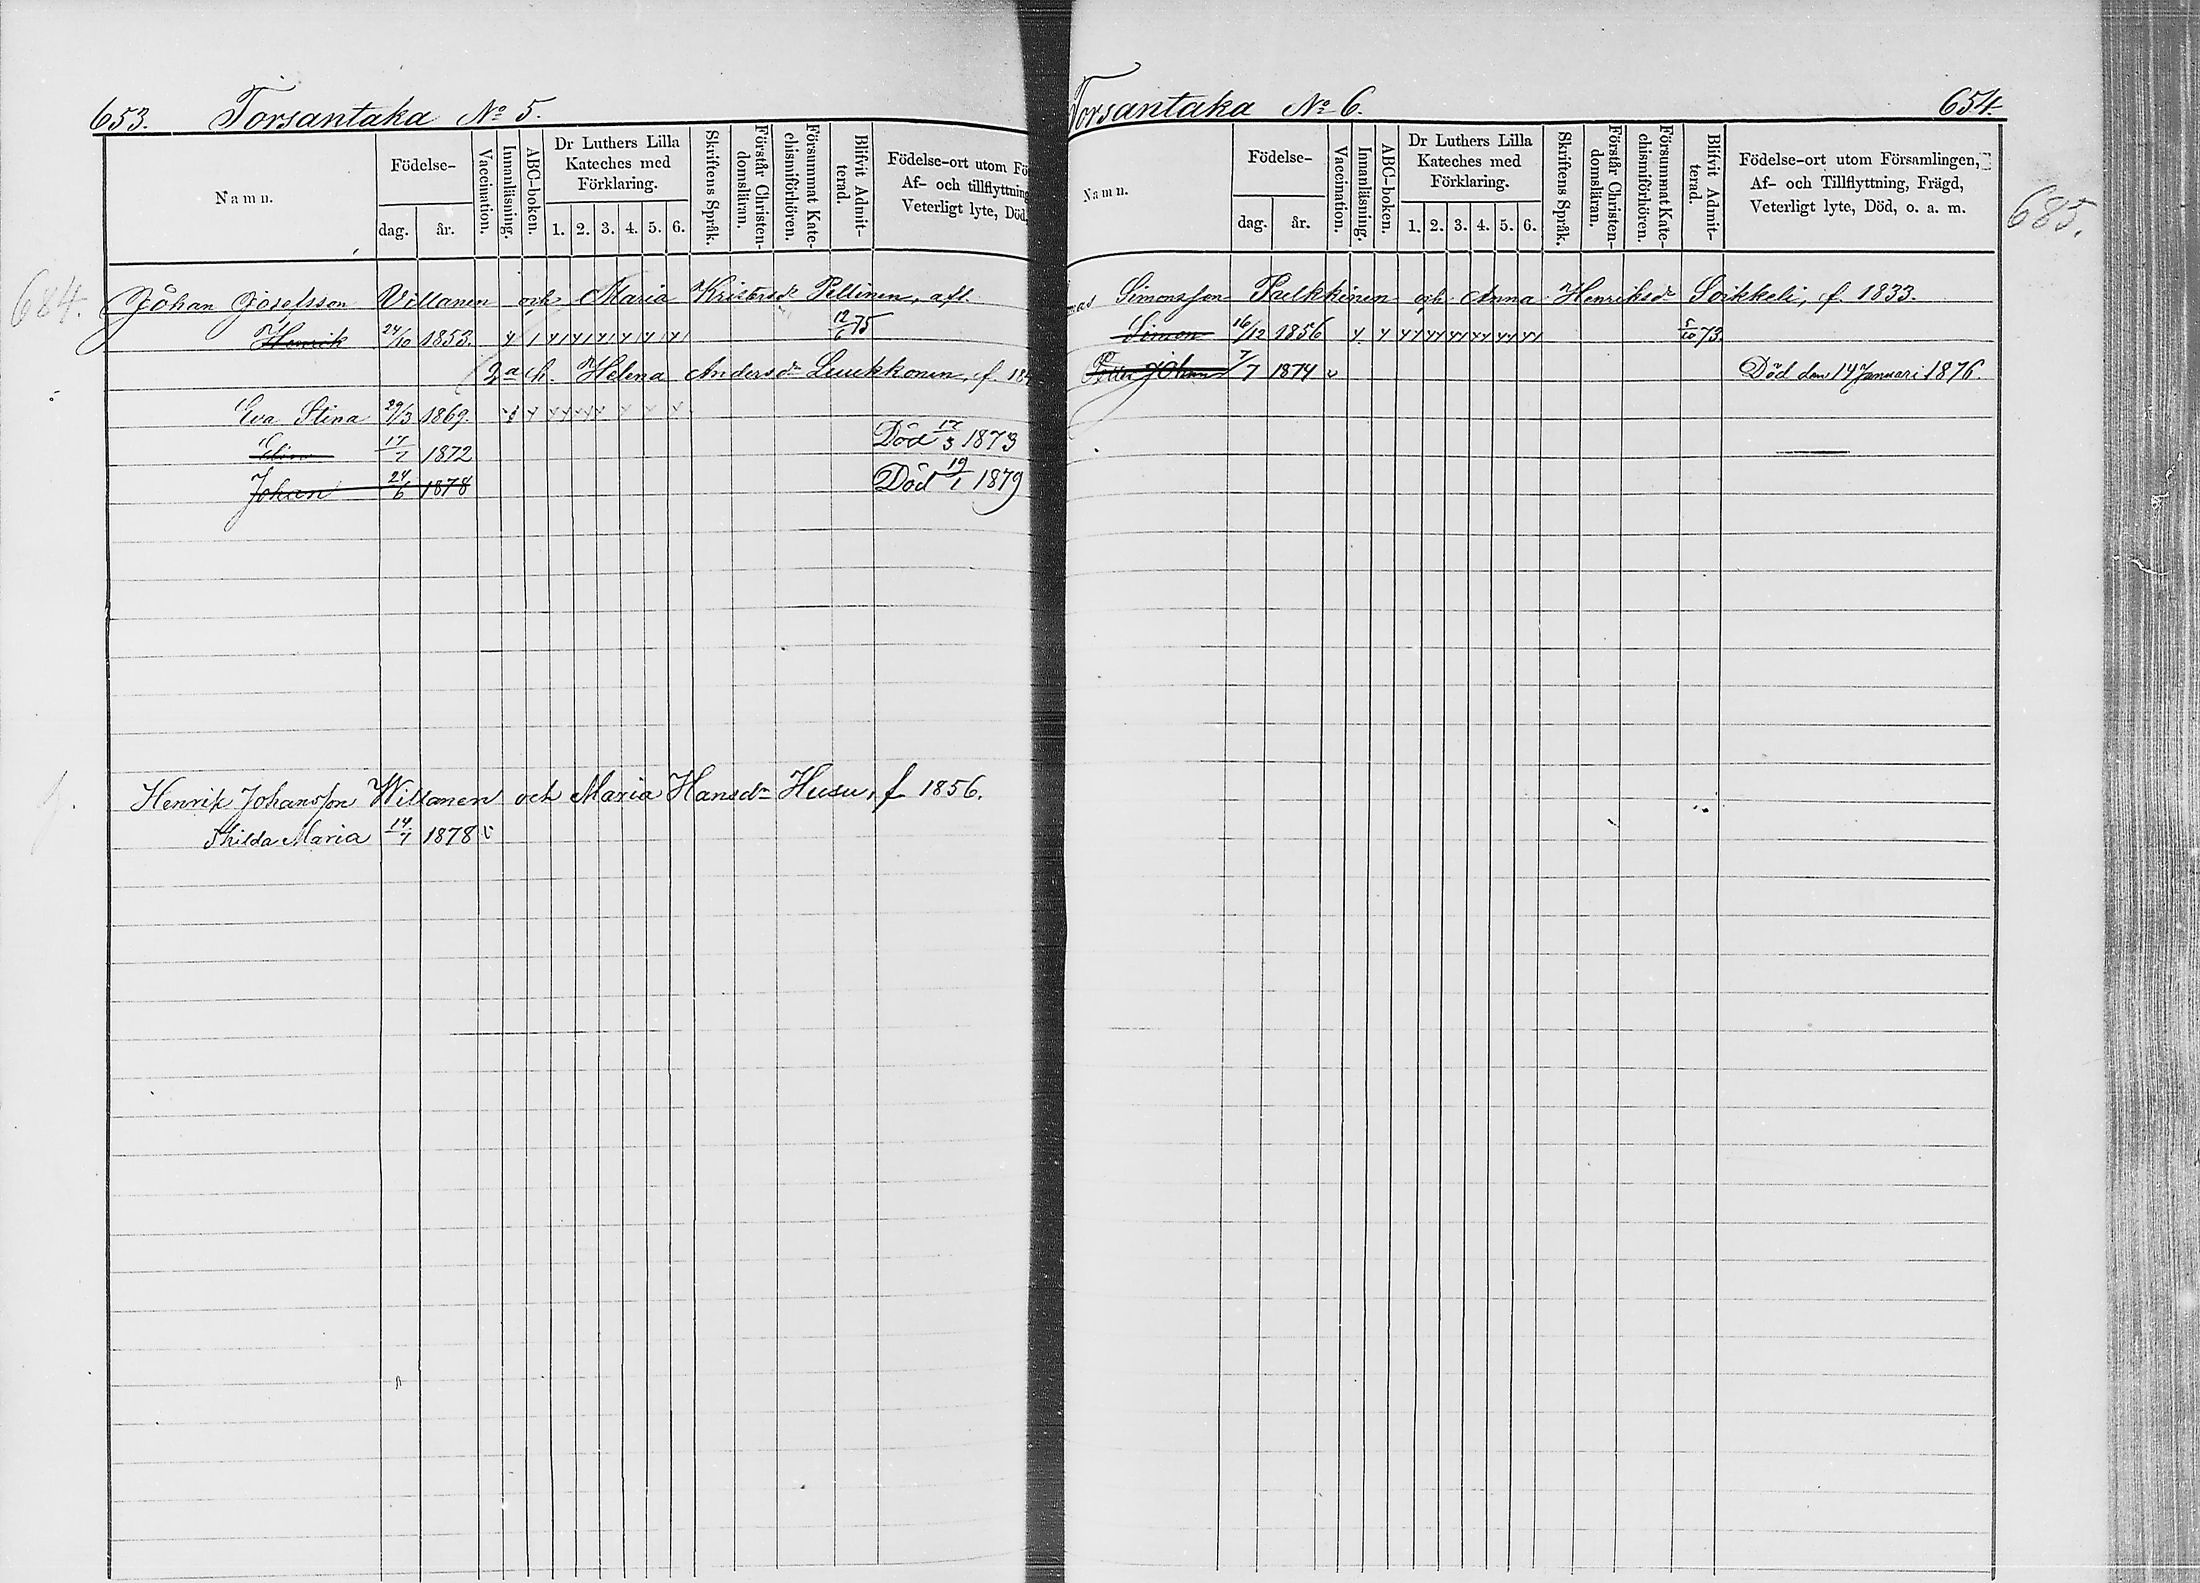 653. Torsantaka No 5.
Namn.
Födelse-
dag. år.
Vaccination.
Innanläsning.
ABC-boken.
Dr Luthers Lilla
Kateches med
Förklaring.
1. 2. 3. 4. 5. 6.
Skriftens Språk.
Förstår Christen-
domsläran.
Försummat Kate-
chismiförhören.
Blifvit Admit-
terad.
Födelse-ort utom Fö
Af- och tillflyttning
Veterligt lyte, Död,
684.
Johan Josefsson Villanen och Maria Kristersdr Pellinen, afl.
Henrik 24/10 1853. 12/6 75
2a h. Helena Andersdr Luukkonen, f. 184
Eva Stina 29/3 1869.
Elina 17/7 1872 Död 17/3 1873
Johan 24/6 1878 Död 19/1 1879
Henrik Johansson Willanen och Maria Hansdr Husu, f 1856.
Hilda Maria 14/7 1878 v
Torsantaka No 6. 654.
Namn.
Födelse-
dag. år.
Vaccination.
Innanläsning.
ABC-boken.
Dr Luthers Lilla
Kateches med
Förklaring.
1. 2. 3. 4. 5. 6.
Skriftens Språk.
Förstår Christen-
domsläran.
Försummat Kate-
chismiförhören.
Blifvit Admit-
terad.
Födelse-ort utom Församlingen,
Af- och Tillflyttning, Frägd,
Veterligt lyte, Död, o. a. m.
685.
mas Simonsson Pulkkinen och Anna Henriksdr Soikkeli, f. 1833.
Simon 16/12 1856 5/10 73
Petter Johan 7/7 1874 v Död den 14 Januari 1876.